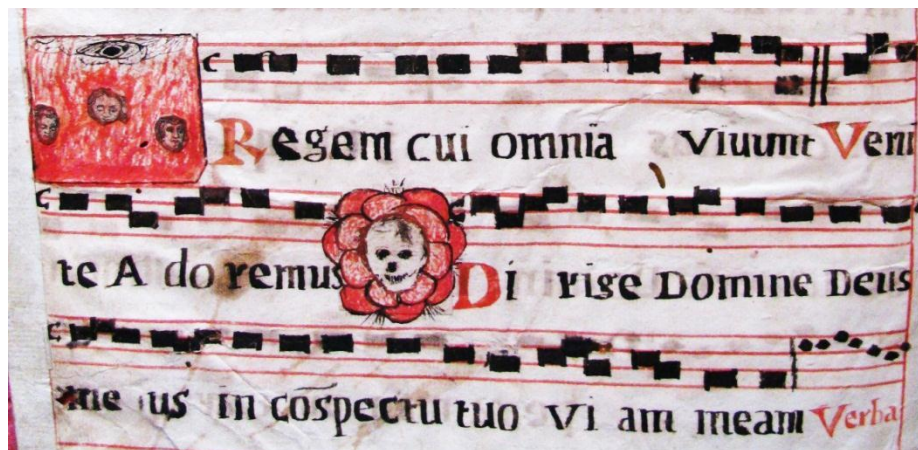 Regem cui omnia Viuunt Veni
te A do remus Di rige Domine Deus
me us in cōspectu tuo Vi am meam Verba